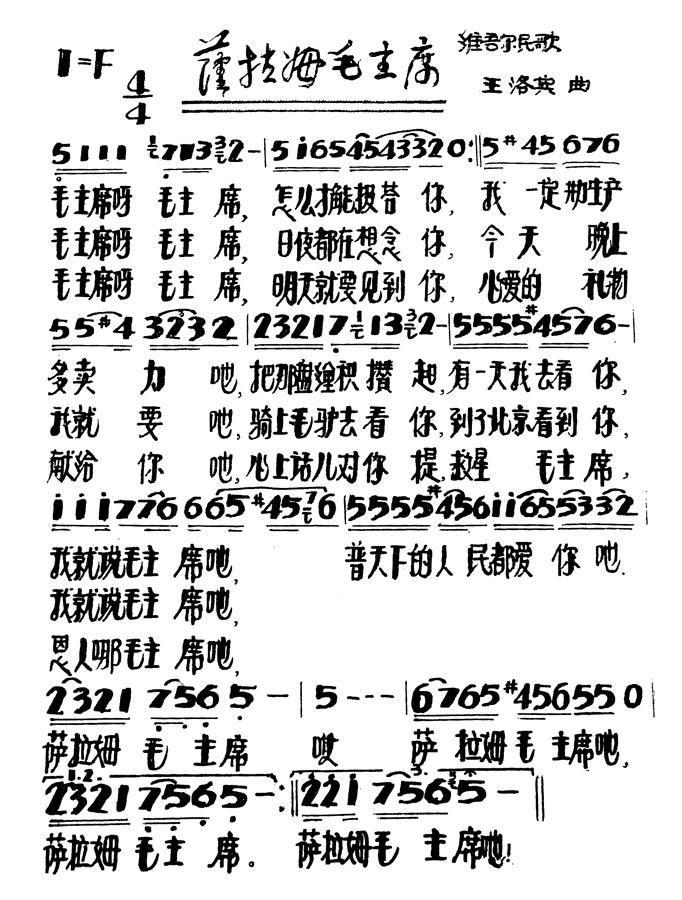 1=F 4/4 萨拉姆毛主席 维吾尔民歌
王洛宾 曲
5 1 1 1 7 1 1 3 2 - | 5 i 6 5 4 5 4 3 3 2 0 :‖ 5 #4 5 6 7 6
毛主席呀 毛主 席, 怎么才能报答 你, 我 一定加生产
毛主席呀 毛主 席, 日夜都在想念 你, 今 天 晚上
毛主席呀 毛主 席, 明天就要见到 你, 心爱的 礼物
5 5 #4 3 2 3 2 | 2 3 2 1 7 1 1 3 2 - | 5 5 5 5 #4 5 7 6 - |
多卖 力 吔, 把那 攒 起, 有一天我去看 你,
我就 要 吔, 骑上毛驴去看 你, 到了北京看到 你,
献给 你 吔, 心上话儿对你 提, 救星 毛主席,
i i i 7 7 6 6 6 5 #4 5 7 6 | 5 5 5 5 #4 5 6 i i 6 5 5 3 3 2 |
我就说毛主 席吔, 普天下的人 民都爱 你 吔.
我就说毛主 席吔,
恩人哪毛主 席吔,
2 3 2 1 7 5 6 5 - | 5 - - - | 6 7 6 5 #4 5 6 5 5 0 |
萨拉姆 毛 主席 哎 萨 拉姆毛 主席吔,
1.2. 3.
2 3 2 1 7 5 6 5 - :‖ 2 2 i 7 5 6 5 - ‖
萨拉姆 毛 主 席. 萨拉姆毛 主席吔!